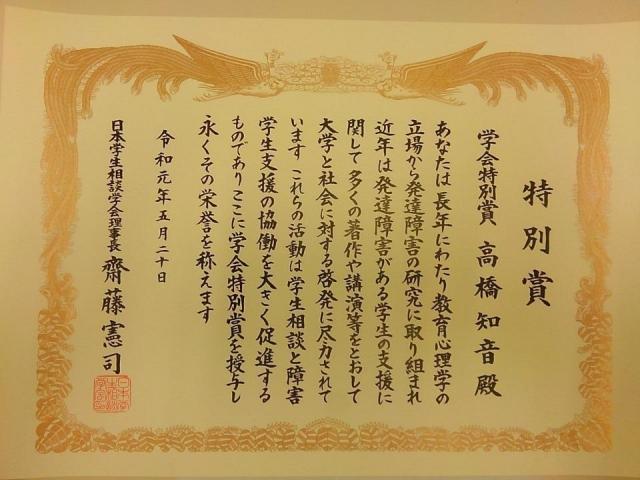 特別賞
学会特別賞 高橋知音殿
あなたは長年にわたり教育心理学の
立場から発達障害の研究に取り組まれ
近年は発達障害がある学生の支援に
関して多くの著作や講演等をとおして
大学と社会に対する啓発に尽力されて
います これらの活動は学生相談と障害
学生支援の協働を大きく促進する
ものでありここに学会特別賞を授与し
永くその栄誉を称えます
令和元年五月二十日
日本学生相談学会理事長 齋藤憲司